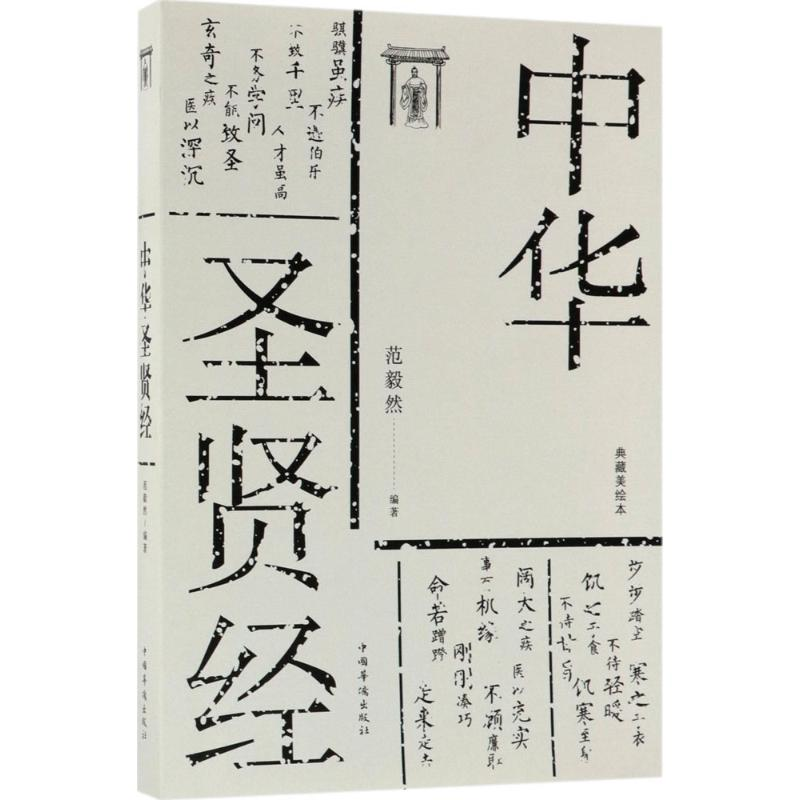 中华
圣贤经
范毅然
编著
典藏美绘本
中国华侨出版社
骐骥虽疾
不遇伯乐
不致千里
人才虽高
不务学问
不能致圣
玄奇之疾
医以深沉
步步踏空
寒之于衣
不待轻暖
饥之于食
饥寒至身
阔大之疾
医以充实
不顾廉耻
机缘
刚刚凑巧
命若蹭蹬
走来走去
中华圣贤经
范毅然 编著
中国华侨出版社